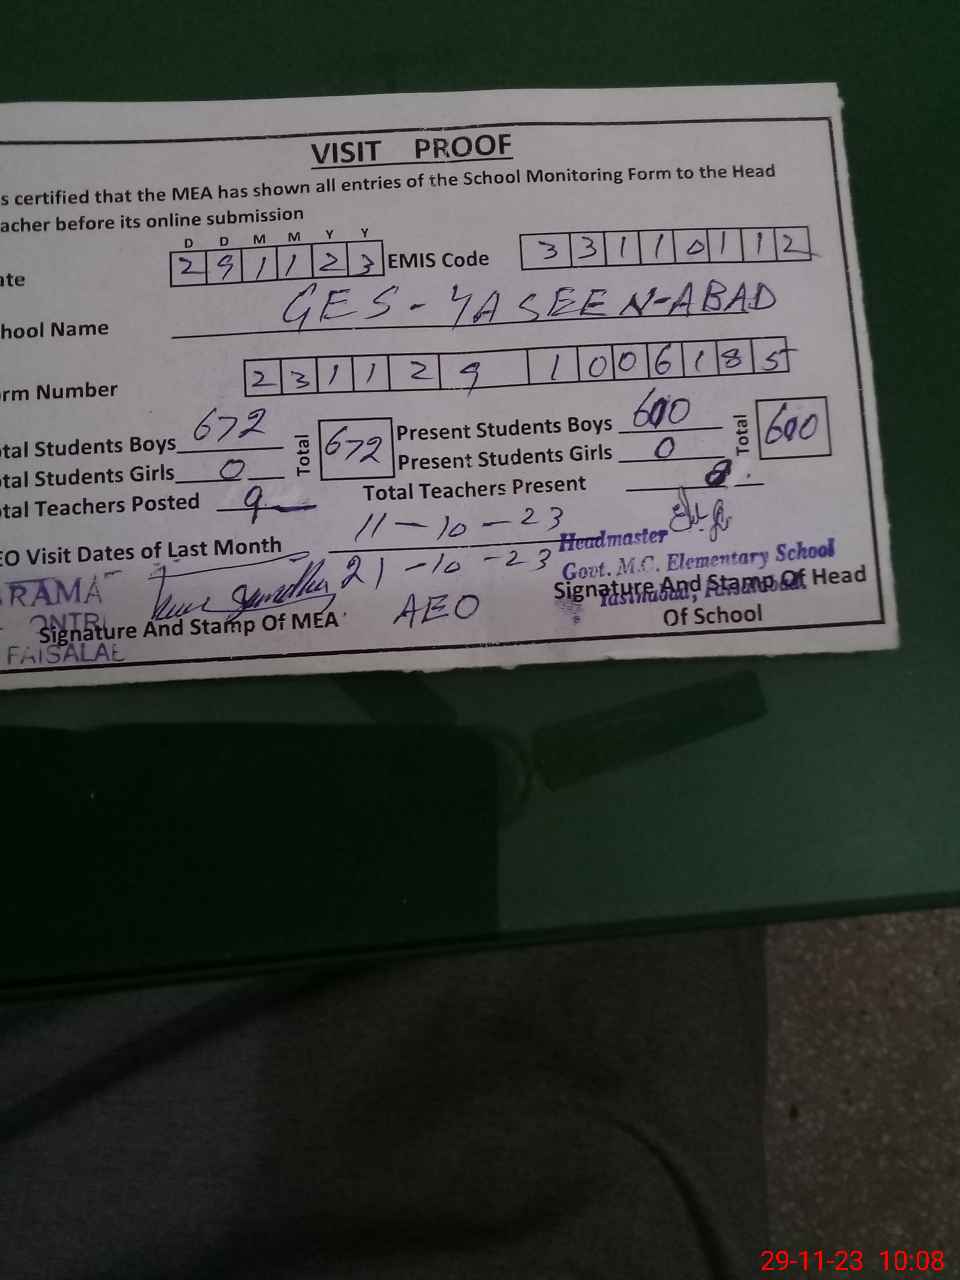 VISIT PROOF
s certified that the MEA has shown all entries of the School Monitoring Form to the Head
acher before its online submission
D D M M Y Y
ate 291123 EMIS Code 33110112
hool Name GES-YASEEN-ABAD
rm Number 2311291006185
tal Students Boys 672 Total 672 Present Students Boys 600 Total 600
tal Students Girls 0 Present Students Girls 0
tal Teachers Posted 9 Total Teachers Present
EO Visit Dates of Last Month 11-10-23
21-10-23
AEO
Headmaster
Govt. M.C. Elementary School
RAMA
Signature And Stamp Of MEA
FAISALAE
Signature And Stamp Of Head
Of School
29-11-23 10:08